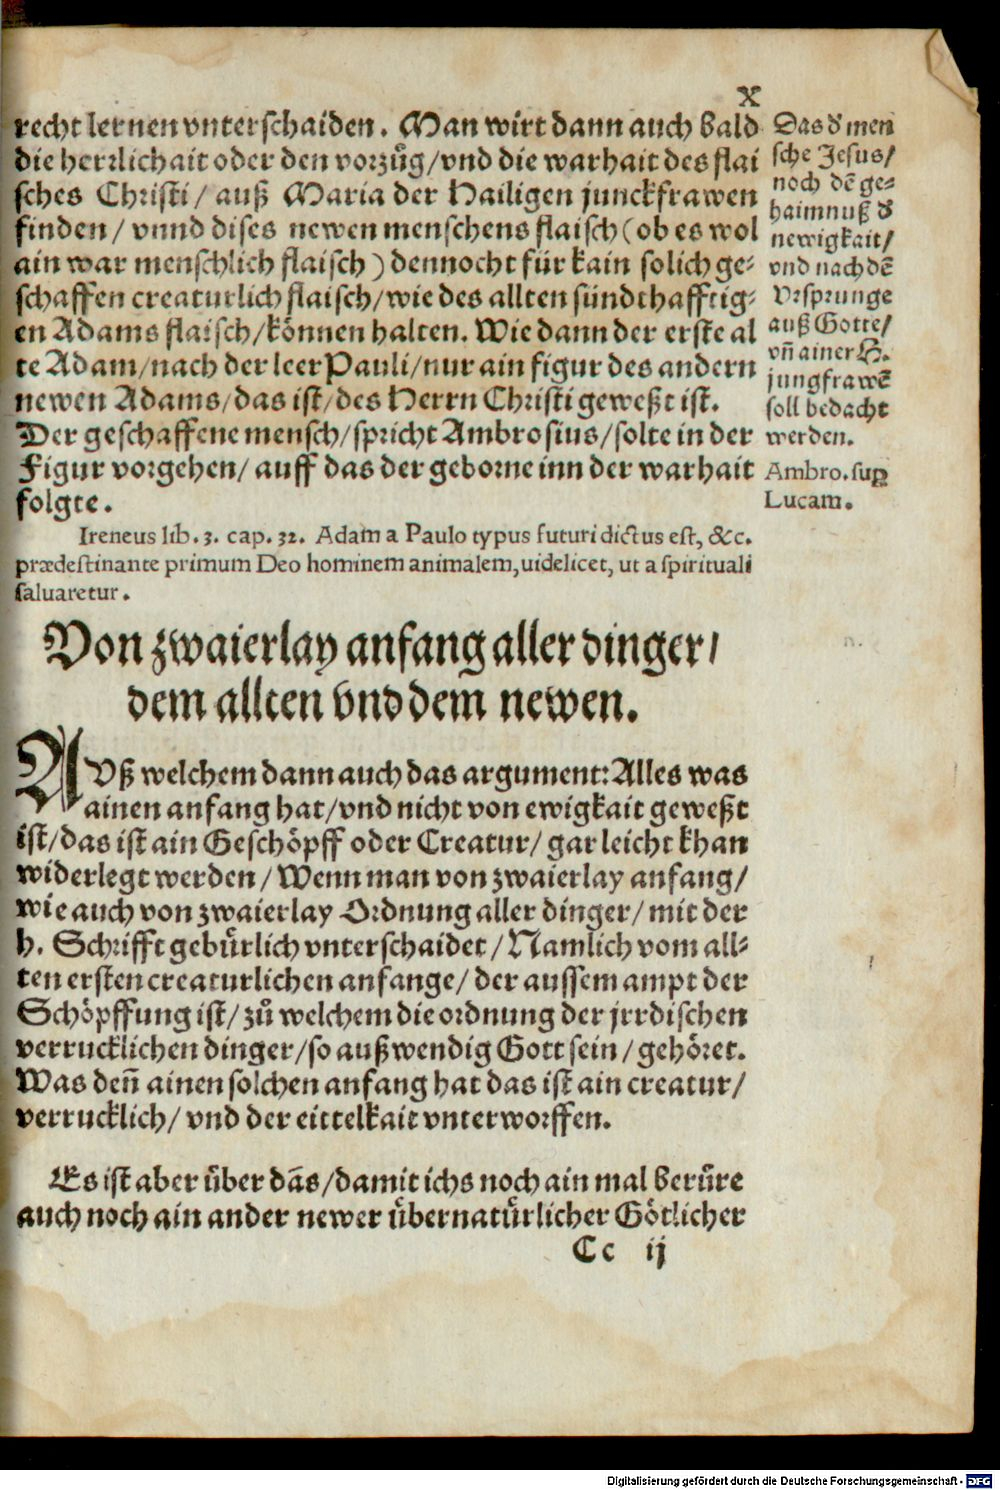 X
recht lernen vnterschaiden. Man wirt dann auch bald
die herrlichait oder den vorzůg/vnd die warhait des flai
sches Christi/ auß Maria der Hailigen junckfrawen
finden/ vnnd dises newen menschens flaisch (ob es wol
ain war menschlich flaisch) dennocht für kain solich ge⸗
schaffen creaturlich flaisch/wie des allten sündthafftig⸗
en Adams flaisch/können halten. Wie dann der erste al
te Adam/nach der leer Pauli/nur ain figur des andern
newen Adams/das ist/des Herrn Christi geweßt ist.
Der geschaffene mensch/spricht Ambrosius/solte in der
Figur vorgehen/ auff das der geborne inn der warhait
folgte.
Das ď men
sche Jesus/
noch dē ge⸗
haimnuß ď
newigkait/
vnd nach dē
Vrsprunge
auß Gotte/
vñ ainer H.
jungfrawē
soll bedacht
werden.
Ambro. suꝑ
Lucam.
Ireneus lib. 3. cap. 32. Adam a Paulo typus futuri dictus est, &c.
prædestinante primum Deo hominem animalem, uidelicet, ut a spirituali
saluaretur.
Von zwaierlay anfang aller dinger/
dem allten vnd dem newen.
AVß welchem dann auch das argument: Alles was
ainen anfang hat/vnd nicht von ewigkait geweßt
ist/das ist ain Geschöpff oder Creatur/ gar leicht khan
widerlegt werden/Wenn man von zwaierlay anfang/
wie auch von zwaierlay Ordnung aller dinger/mit der
h. Schrifft gebürlich vnterschaidet/Namlich vom all⸗
ten ersten creaturlichen anfange/ der aussem ampt der
Schöpffung ist/ zů welchem die ordnung der jrrdischen
verrucklichen dinger/so außwendig Gott sein/gehöret.
Was deñ ainen solchen anfang hat das ist ain creatur/
verrucklich/ vnd der eittelkait vnterworffen.
Es ist aber über dās/damit ichs noch ain mal berüre
auch noch ain ander newer übernatürlicher Götlicher
Cc ij
Digitalisierung gefördert durch die Deutsche Forschungsgemeinschaft - DFG